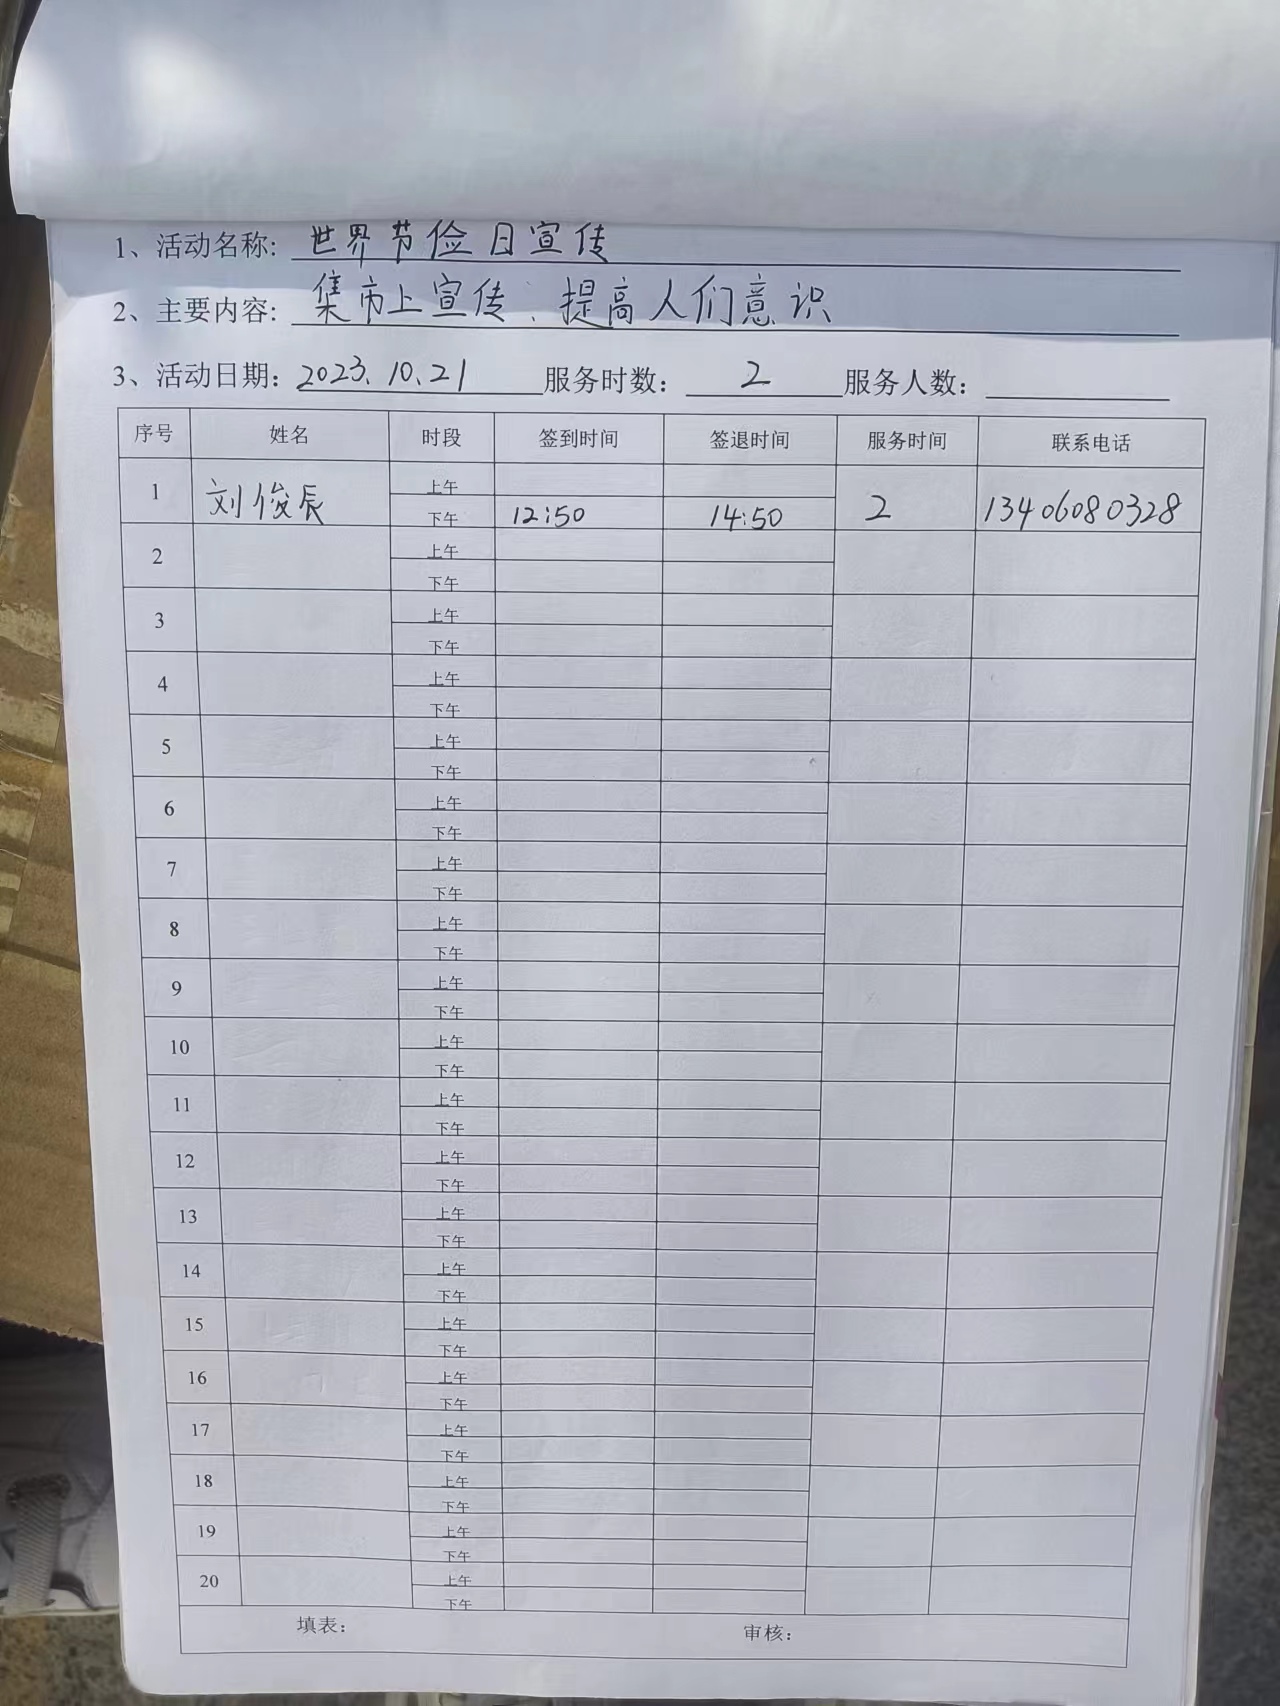 1、活动名称: 世界节俭日宣传
2、主要内容: 集市上宣传、提高人们意识
3、活动日期: 2023.10.21 服务时数: 2 服务人数:
序号 姓名 时段 签到时间 签退时间 服务时间 联系电话
1 刘俊辰 上午
下午 12:50 14:50 2 13406080328
2 上午
下午
3 上午
下午
4 上午
下午
5 上午
下午
6 上午
下午
7 上午
下午
8 上午
下午
9 上午
下午
10 上午
下午
11 上午
下午
12 上午
下午
13 上午
下午
14 上午
下午
15 上午
下午
16 上午
下午
17 上午
下午
18 上午
下午
19 上午
下午
20 上午
下午
填表: 审核: